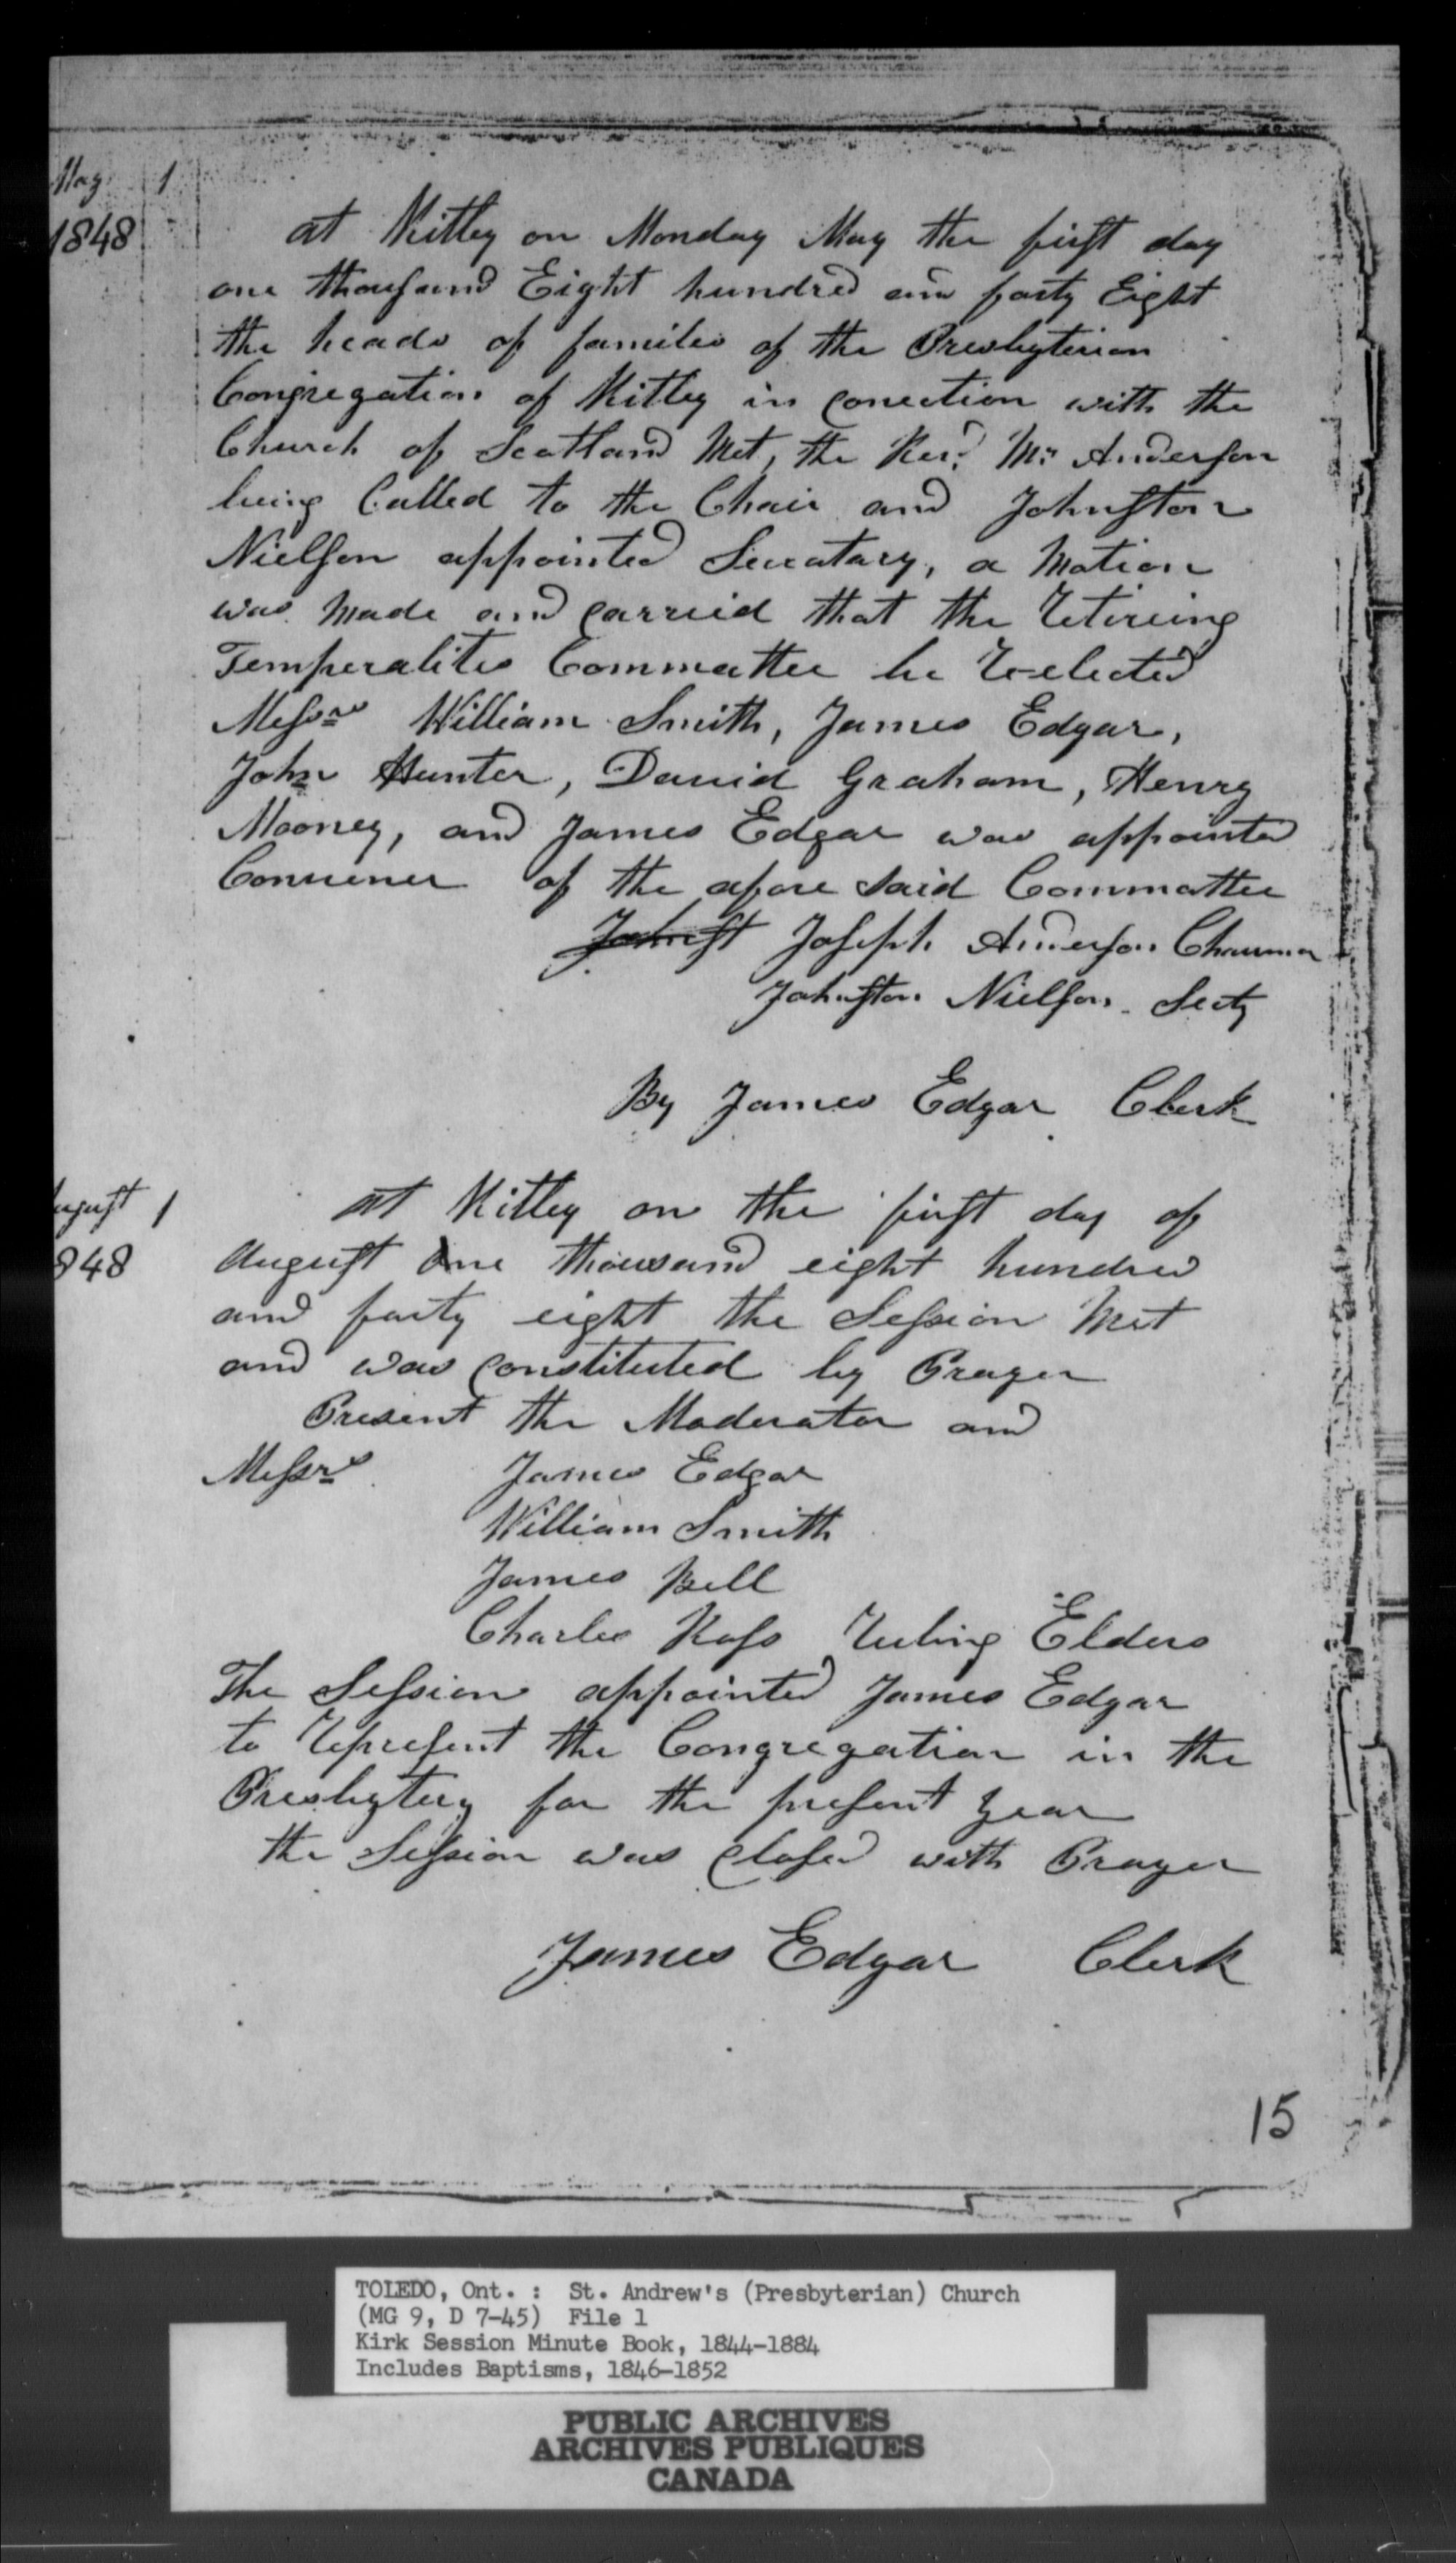 May 1
1848
at Kitley on Monday May the first day
one thousand Eight hundred and forty Eight
the heads of familes of the Presbyterian
Congregation of Kitley in Conection with the
Church of Scotland Met, the Revd. Mr Anderson
being Called to the Chair and Johnston
Nielson appointed Secatary, a Motion
was Made and Carried that the Retireing
Temperalites Committee be Re-elected
Messrs William Smith, James Edgar,
John Hunter, David Graham, Henry
Mooney, and James Edgar was appointed
Convener of the afore Said Committee
Johnst Joseph Anderson Chairman
Johnston Nielson Secty
By James Edgar Clerk
August 1
848
at Kitley on the first day of
August One thousand eight hundred
and forty eight the Session Met
and was Constituted by Prayer
Present the Moderator and
Messrs James Edgar
William Smith
James Bell
Charles Ross Ruling Elders
The Session appointed James Edgar
to Represent the Congregation in the
Presbytery for the present year
the Session was Closed with Prayer
James Edgar Clerk
15
TOLEDO, Ont. : St. Andrew's (Presbyterian) Church
(MG 9, D 7-45) File 1
Kirk Session Minute Book, 1844-1884
Includes Baptisms, 1846-1852
PUBLIC ARCHIVES
ARCHIVES PUBLIQUES
CANADA